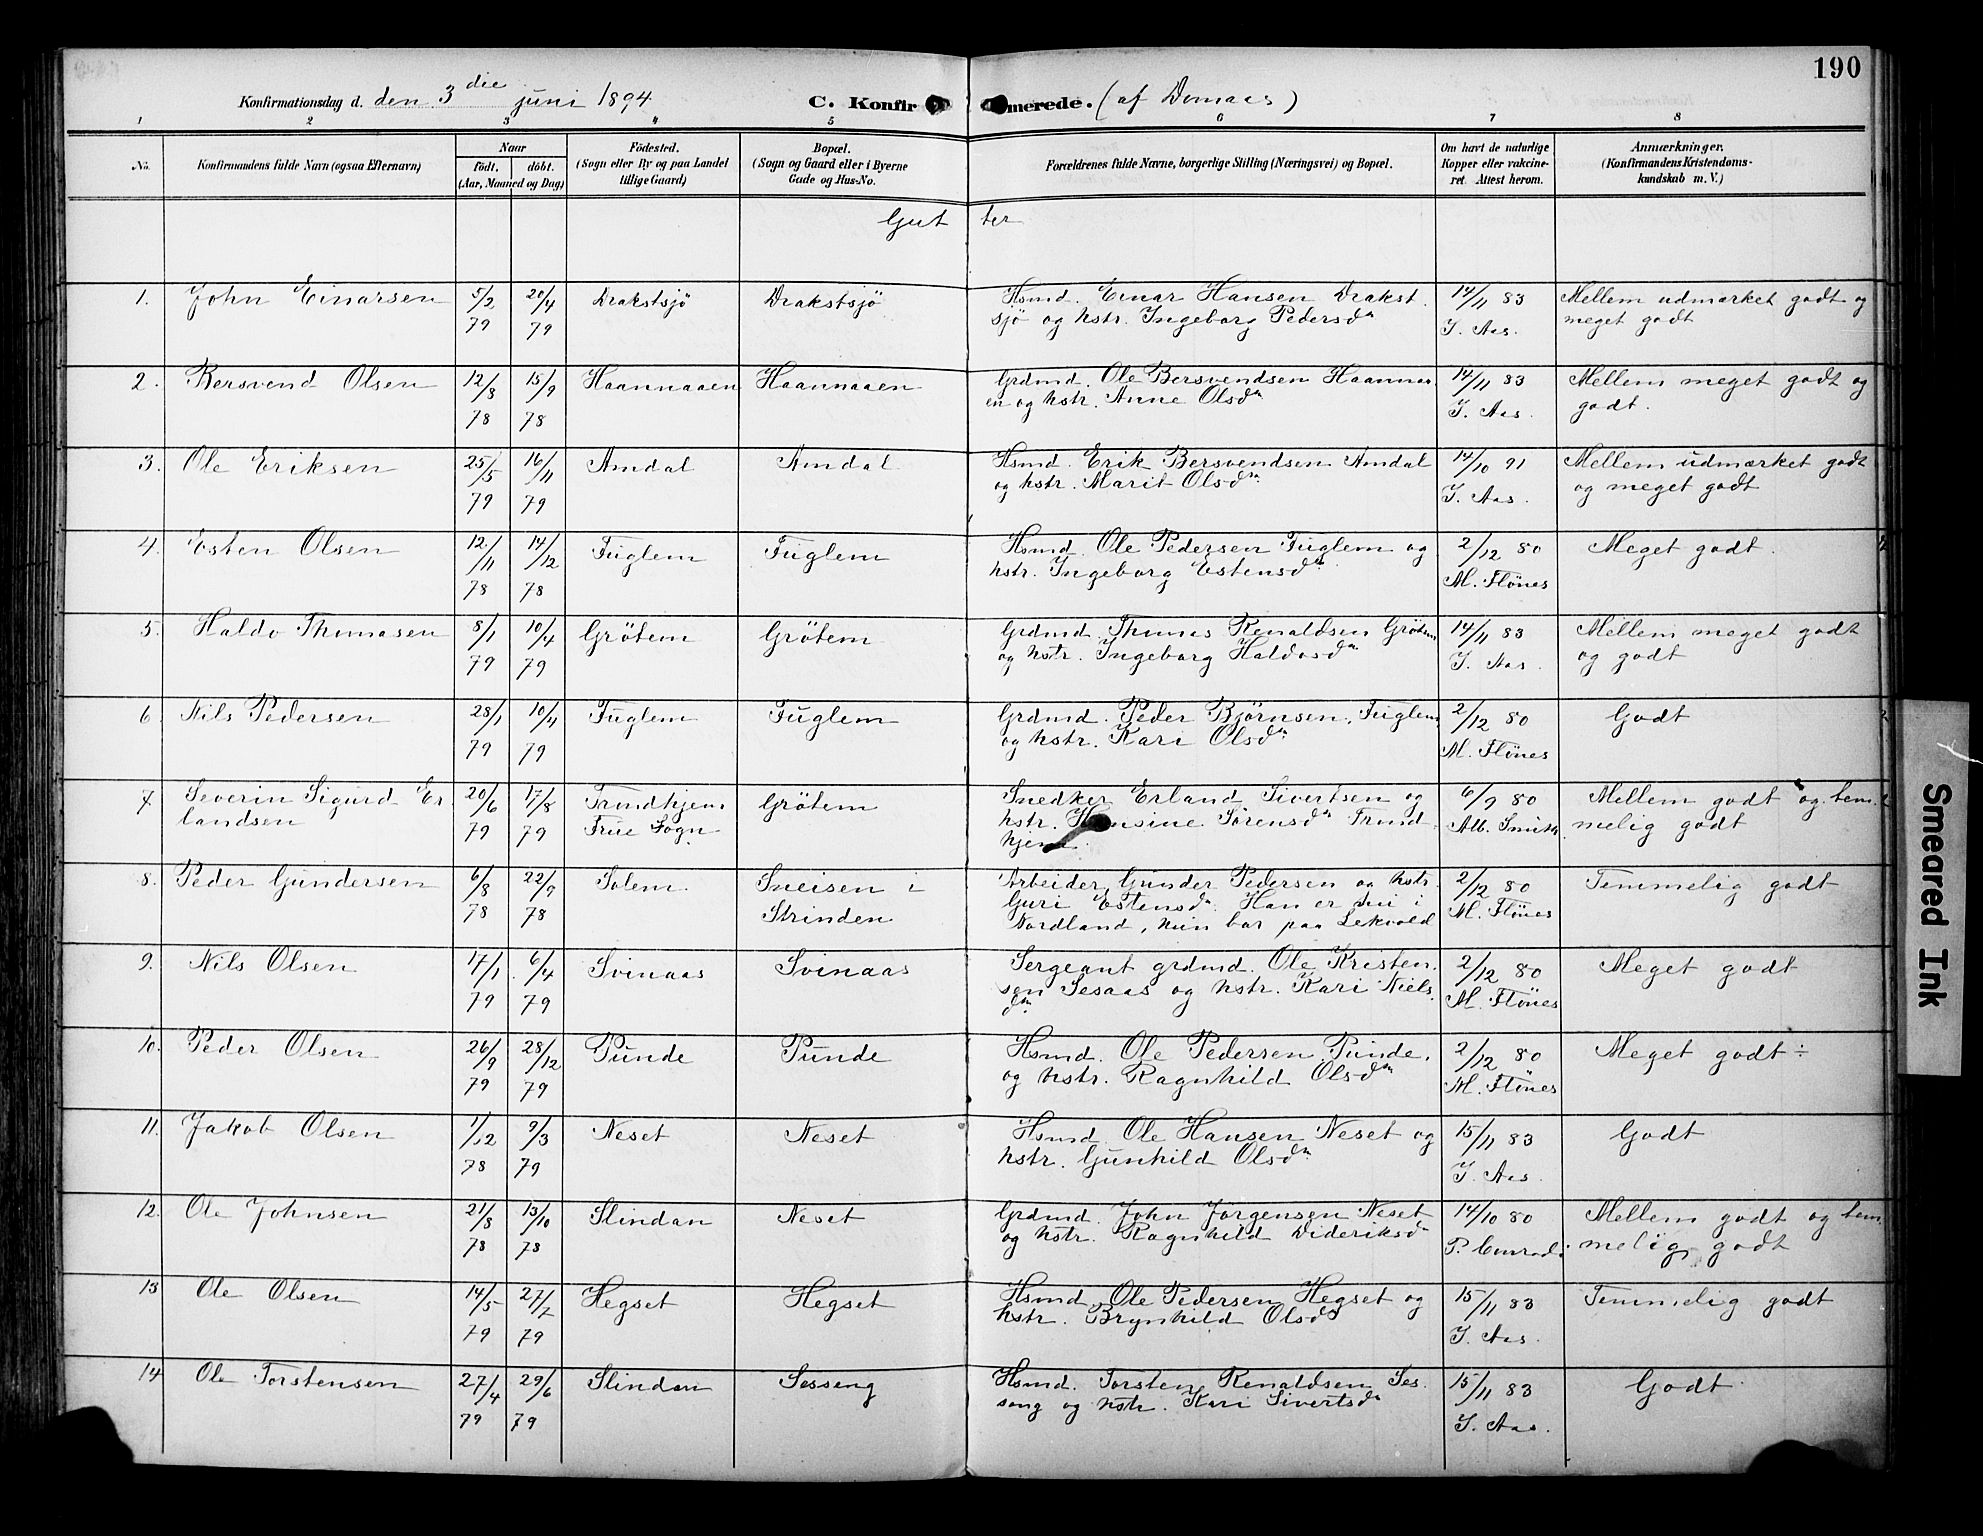 190
Konfirmationsdag d. den 3die juni 1894. C. Konfirmerede. (af Domaas)
1 2 3 4 5 6 7 8
No. Konfirmandens fulde Navn (ogsaa Efternavn) Naar födt, döbt. (Aar, Maaned og Dag) Födested. (Sogn eller By og paa Landet tillige Gaard) Bopæl. (Sogn og Gaard eller i Byerne Gade og Hus-No. Forældrenes fulde Navne, borgerlige Stilling (Næringsvei) og Bopæl. Om havt de naturlige Kopper eller vakcineret. Attest herom. Anmærkninger. (Konfirmandens Kristendomskundskab m. V.)
Gutter
1. John Einarsen 5/2 79 20/4 79 Drakstsjö Drakstsjö Hsmd. Einar Hansen Drakst.
sjö og hstr. Ingeborg Pedersdn 14/11 83 I. Aas. Mellem udmærket godt og
meget godt
2. Bersvend Olsen 12/8 78 15/9 78 Haannaaen Haannaaen Grdmd. Ole Bersvendsen Haannaa
en og hstr. Anne Olsdn 14/11 83 I. Aas. Mellem meget godt og
godt.
3. Ole Eriksen 25/5 79 16/11 79 Amdal Amdal Hsmd. Erik Bersvendsen Amdal
og hstr. Marit Olsdn. 14/10 91 I. Aas. Mellem udmærket godt
og meget godt
4. Esten Olsen 12/11 78 14/12 78 Fuglem Fuglem Hsmd. Ole Pedersen Fuglem og
hstr. Ingeborg Estensdn. 2/12 80 M. Flönes Meget godt.
5. Haldo Thomasen 8/1 79 10/4 79 Grötem Grötem Grdmd. Thomas Renaldsen Grötem
og hstr. Ingeborg Haldosdn 14/11 83 I. Aas. Mellem meget godt
og godt
6. Nils Pedersen 28/1 79 10/4 79 Fuglem Fuglem Grdmd. Peder Bjørnsen, Fuglem
og hstr. Kari Olsdn. 2/12 80 M. Flönes Godt
7. Severin Sigurd Er
landsen 20/6 79 17/8 79 Trondhjems
Frue Sogn Grötem Snedker Erland Sivertsen og
hstr. Hansine Sörensdn Trond
hjem. 6/9 80 Alb. Smith Mellem godt og tem
melig godt
8. Peder Gundersen 6/8 78 22/9 78 Solem. Sneisen i
Strinden Arbeider Gunder Pedersen og hstr.
Guri Estensdn. Han er nu i
Nordland, hun bor paa Lekvold 2/12 80 M. Flönes Temmelig godt
9. Nils Olsen 17/1 79 6/4 79 Svinaas Svinaas Sergeant grdmd. Ole Kristen.
sen Sesaas og hstr. Kari Niels
dn. 2/12 80 M. Flönes Meget godt
10. Peder Olsen 26/9 79 28/12 79 Punde Punde Hsmd. Ole Pedersen Punde,
og hstr. Ragnhild Olsdn 2/12 80 M. Flönes Meget godt ÷
11. Jakob Olsen 1/12 78 9/3 79 Neset Neset Hsmd. Ole Hansen Neset og
hstr. Gunhild Olsdn. 15/11 83 I. Aas. Godt
12. Ole Johnsen 21/8 78 13/10 78 Slindan Neset Grdmd. John Jørgensen Neset
og hstr. Ragnhild Dideriksdn 14/10 80 P. Conradi Mellem godt og tem
melig godt
13 Ole Olsen 14/5 79 27/7 79 Hegset Hegset Hsmd. Ole Pedersen Hegset og
hstr. Brynhild Olsdn 15/11 83 I. Aas. Temmelig godt
14 Ole Torstensen 27/4 79 29/6 79 Slindan Sesseng Hsmd. Torsten Renaldsen Ses.
song og hstr. Kari Sivertsdn 15/11 83 I. Aas. Godt
Smeared Ink